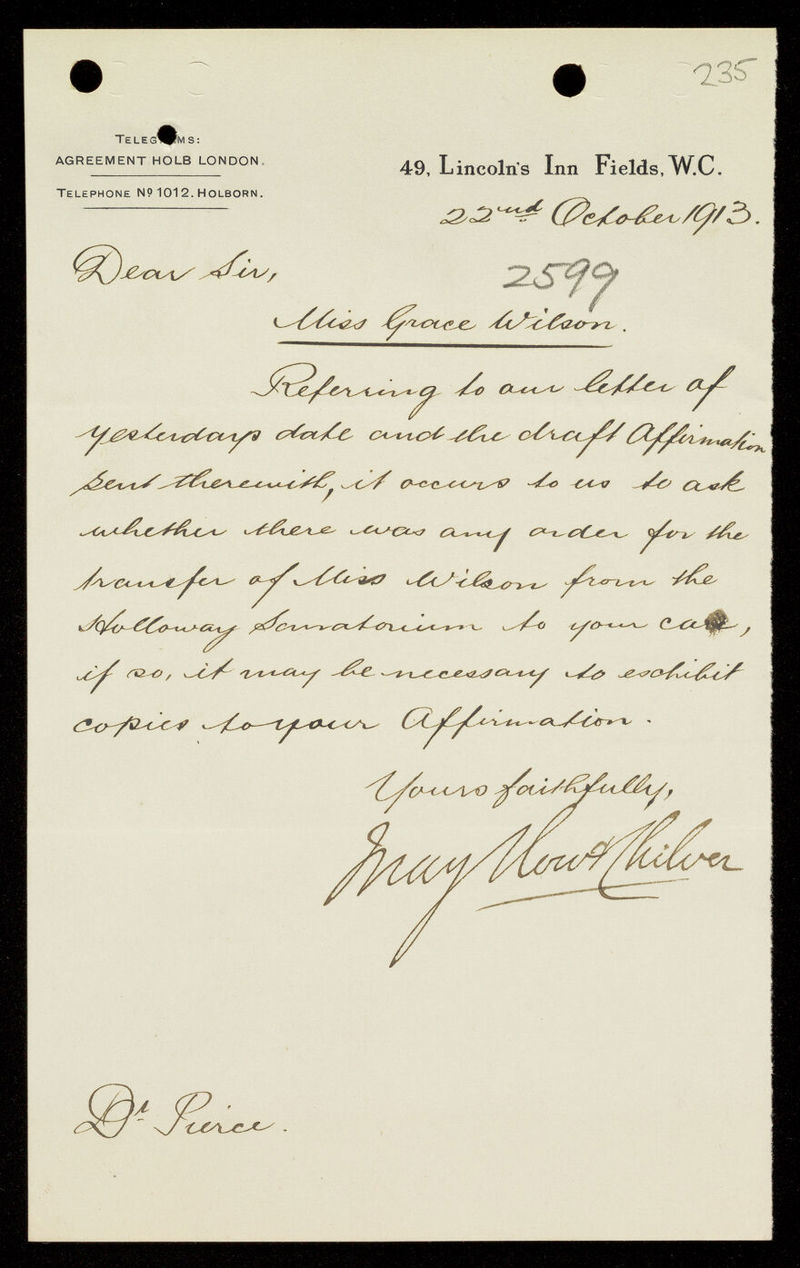 235
TELEGRAMS:
AGREEMENT HOLB LONDON.
TELEPHONE Nº 1012. HOLBORN.
49, Lincoln's Inn Fields, W.C.
22nd October 1913.
Dear Sir,
2599
Miss Grace Wilson.
Referring to our letter of
yesterdays date and the draft Affirmation
sent therewith, it occurs to us to ask
whether there was any order for the
transfer of Miss Wilson from the
Holloway Sanatorium to your care,
if so, it may be necessary to exhibit
copies to your Affirmation.
Yours faithfully,
May How & Chilver
Dr Pierce.